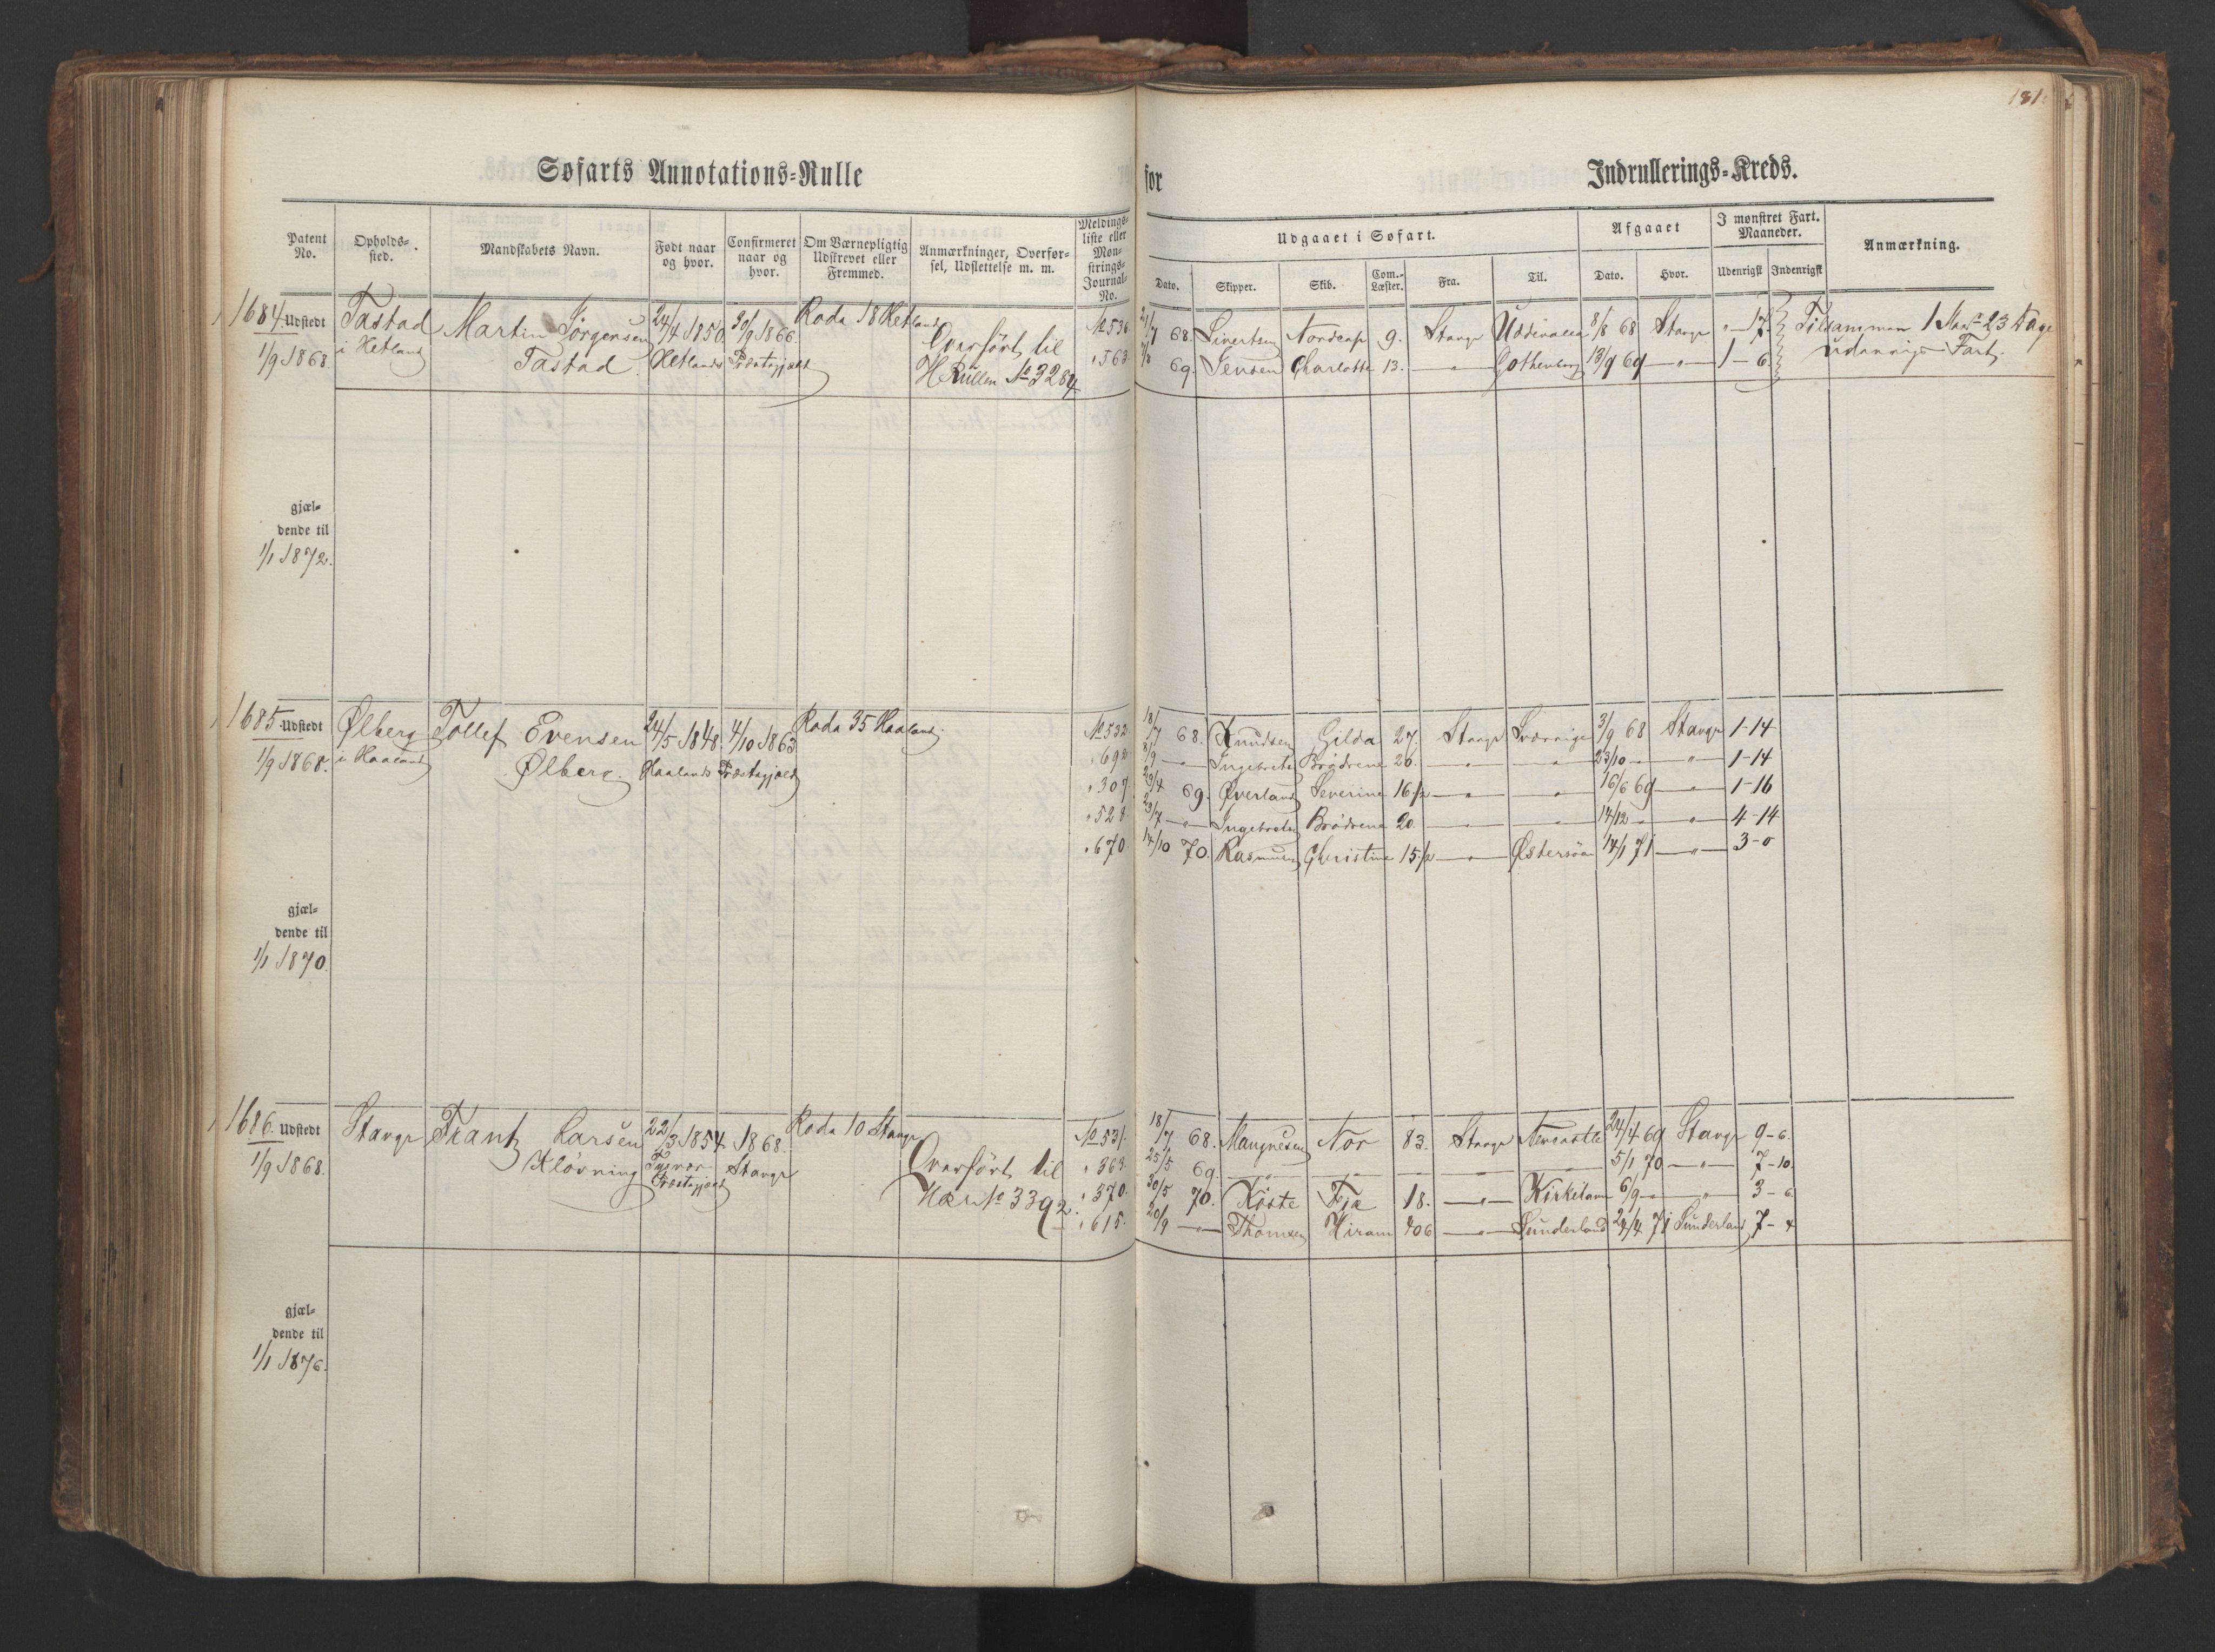 181
Søfarts Annotations-Rulle for Indrullerings-Kreds.
Patent No. Opholds-sted. Mandskabets Navn. Født naar og hvor. Confirmeret naar og hvor. Om Værnepligtig Udskrevet eller Fremmed. Anmærkninger, Overførsel, Udslettelse m. m. Meldings-liste eller Mønstrings-Journal-No.
Udgaaet i Søfart. Afgaaet I mønstret Fart. Maaneder. Anmærkning.
Dato. Skipper. Skib. Com.-Læster. Fra. Til. Dato. Hvor. Udenrigsk Indenrigsk
1684 Udstedt Tastad Martin Jørgensen 24/4 1850. 30/9 1866. Roda 18 Hetland Overført til No 536 21/7 68. Sivertsen Nordcap 9. Stavgr Uddevalla 8/8 68 Stavgr " - 17 Tilsammen 1 Maa. 23 Dage
1/9 1868 i Hetland Tastad. Hetlands Præstegjæld H Rullen No 3284 " 563 7/8 69. Jensen Charlotte 13. — " — Gothenborg 13/9 69 — " — 1 - 6. udenrigs Fart.
gjæl-
dende til
1/1 1872.
1685 Udstedt Ølberg Tollef Evensen 24/5 1848. 4/10 1863 Roda 35 Haaland. No 532 18/7 68. Knudsen Gilda 27. Stavgr Sverrige 3/9 68 Stavgr 1-14
1/9 1868. i Haaland Ølberg. Haalands Præstegjæld " 692 8/9 — " — Ingebretsen Brødrene 26. — " — — " — 23/10 — " — 1-14
" 307 29/4 69. Øverland Severine 16 1/2 — " — — " — 16/6 69 — " — 1-16
" 528 23/7 — " — Ingebretsen Brødrene 20. — " — — " — 14/12 — " — 4-14
" 670 14/10 70. Rasmusen Christine 15 1/2 — " — Østersøen 14/1 71 — " — 3-0
gjæl-
dende til
1/1 1870.
1686. Udstedt Stavgr Frantz Larsen 22/3 1854. 1868. Roda 10 Stavgr No 531. 18/7 68. Mangnesen Nor 83. Stavgr Newcastle 24/4 69 Stavgr 9-6.
1/9 1868. Kløvning Tysvær Præstegjæld Stavgr Overført til " 363. 25/5 69. — " — — — — — 5/1 70 — " — 7-10.
H No 3392. " 370. 30/5 70. Køste Fja 18. — " — 6/9 — " — 3-6
" 615. 20/9 — " — Thomsen Hiram 406 — " — Sunderland 24/4 71 Sunderland 7-4
gjæl-
dende til
1/1 1876.